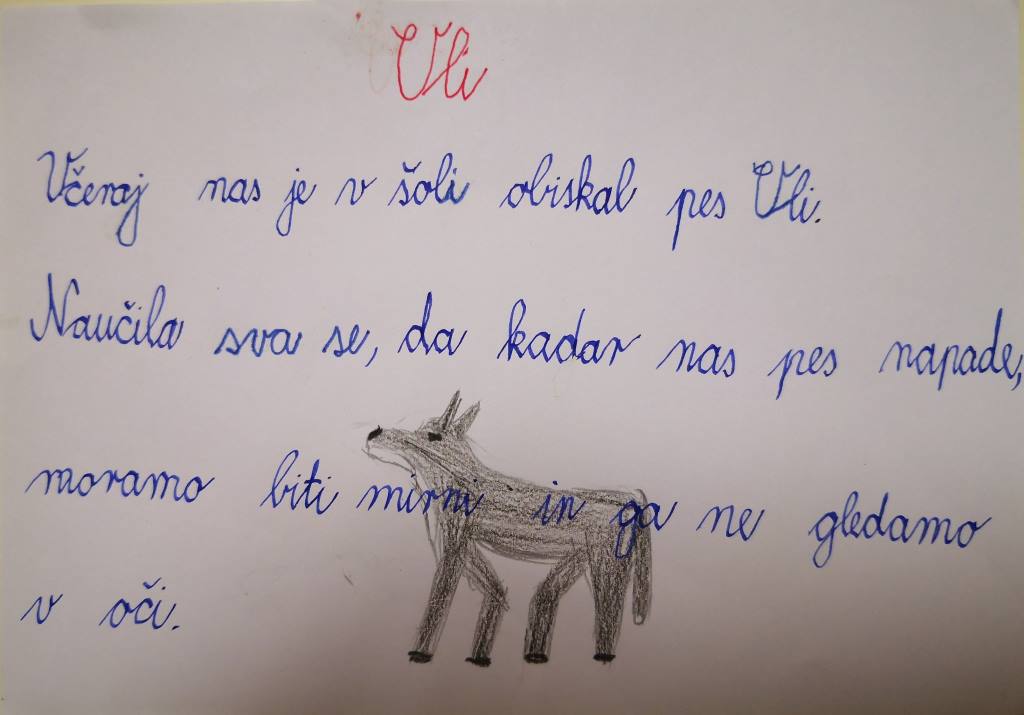 Uli
Včeraj nas je v šoli obiskal pes Uli.
Naučila sva se, da kadar nas pes napade,
moramo biti mirni in ga ne gledamo
v oči.